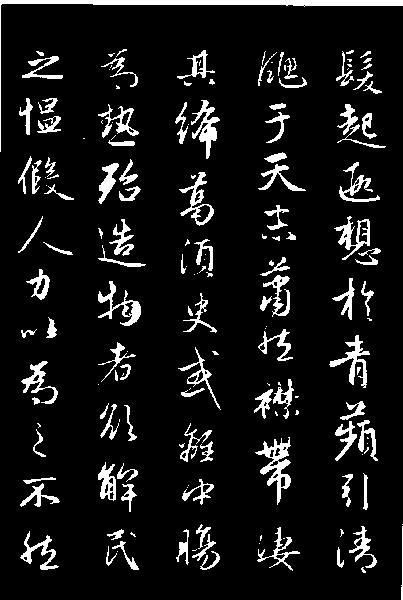 髮起遐想於青蘋引清
颸于天末蕭然襟帶凄
其絺葛須臾或雖中暍
為熱殆造物者欲解民
之愠假人力以為之不然